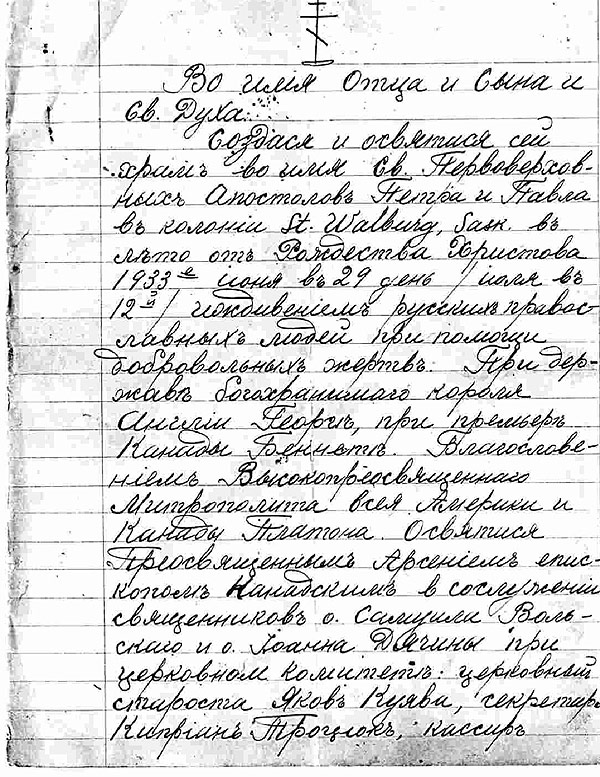 Во имя Отца и Сына и
Св. Духа.
Создася и освятися сей
храмъ во имя Св. Первоверхов-
ныхъ Апостоловъ Петра и Павла
въ колоніи St. Walburg, Sask. въ
лѣто отъ Рождества Христова
1933 е іюня въ 29 день / іюля въ
12 й / иждивеніемъ русскихъ правос-
лавныхъ людей при помощи
добровольныхъ жертвъ. При дер-
жавѣ богохранимаго короля
Англіи Георгѣ, при премьерѣ
Канады Беннетѣ. Благослове-
ніемъ Высокопреосвященнаго
Митрополита всея Америки и
Канады Платона. Освятися
Преосвященнымъ Арсеніемъ епис-
копомъ Канадскимъ в сослуженіи
священниковъ о. Самуила Воль-
скаго и о. Іоанна Дячины при
церковном комитетѣ: церковный
староста Яковъ Куява, секретарь
Кипріанъ Троцюк, кассиръ